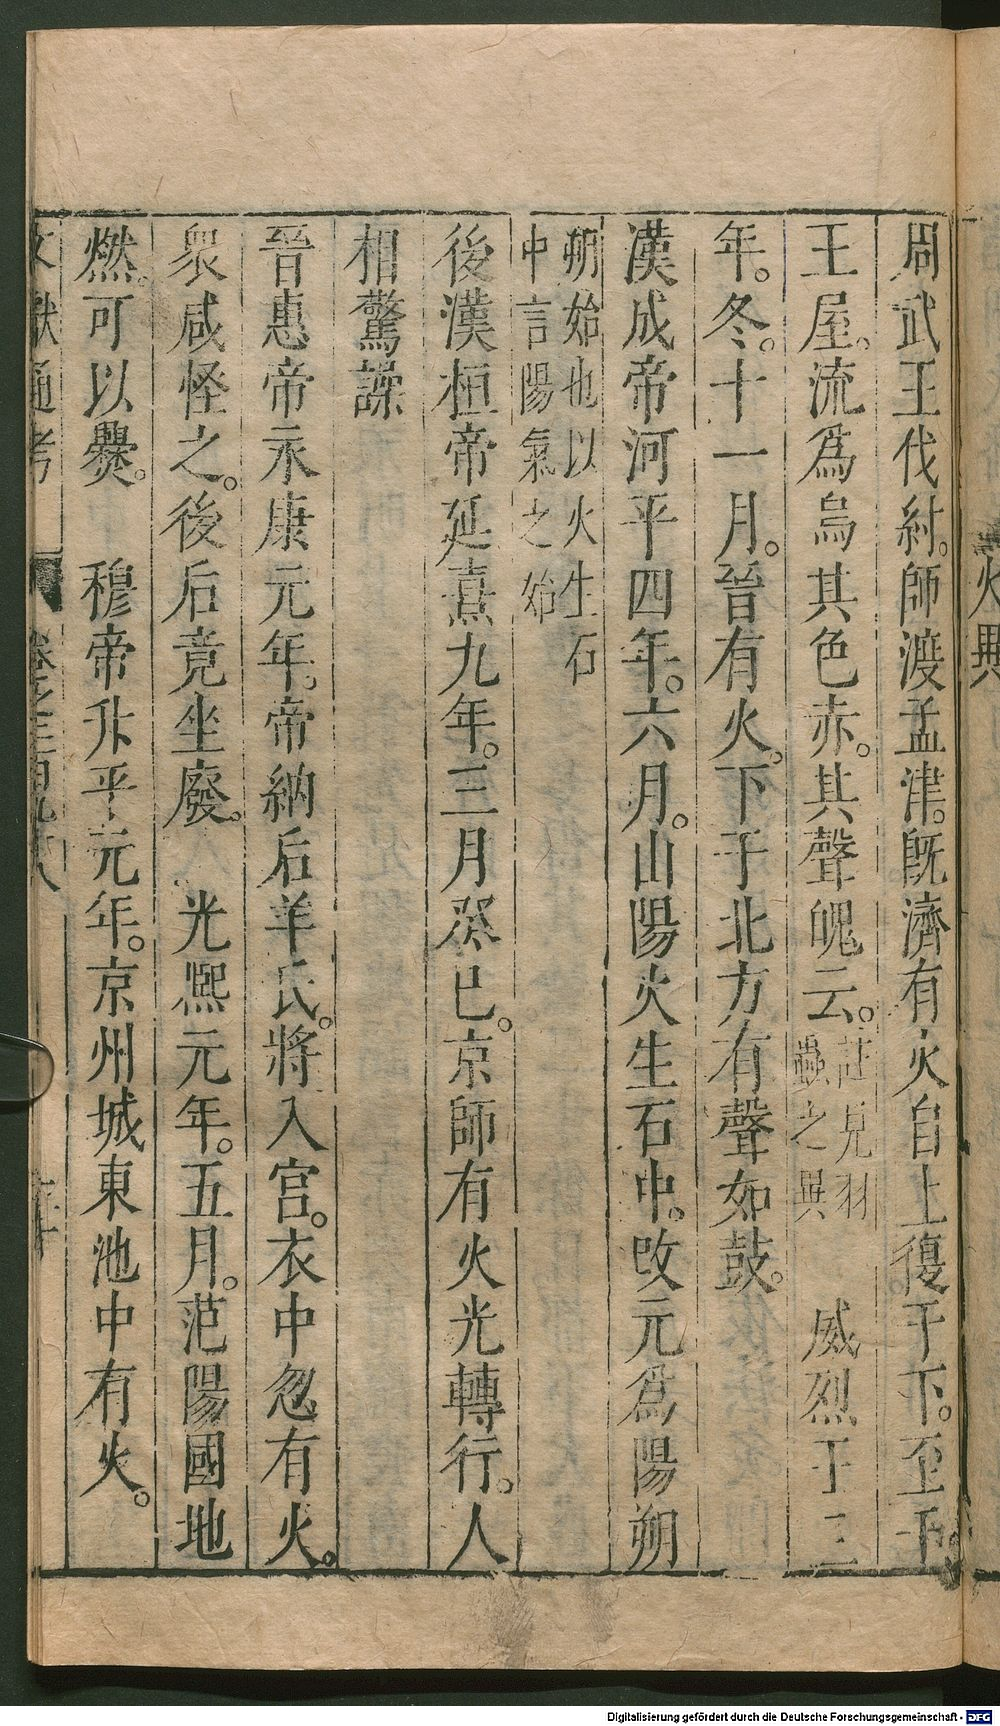 火異
周武王伐紂。師渡孟津。旣濟有火自上復于下。至于
王屋。流爲烏其色赤。其聲魄云。註見羽蟲之異　威烈王三
年。冬。十一月。晉有火。下于北方有聲如鼓。
漢成帝河平四年。六月。山陽火生石中。改元爲陽朔
朔始也以火生石
中言陽氣之始
後漢桓帝延熹九年。三月癸巳。京師有火光轉行。人
相驚譟
晉惠帝永康元年。帝納后羊氏。將入宮。衣中忽有火。
衆咸怪之。後后竟坐廢。　光熙元年。五月。范陽國地
燃。可以爨。　穆帝升平元年。京州城東池中有火。
文獻通考　卷之三百九十八
Digitalisierung gefördert durch die Deutsche Forschungsgemeinschaft - DFG